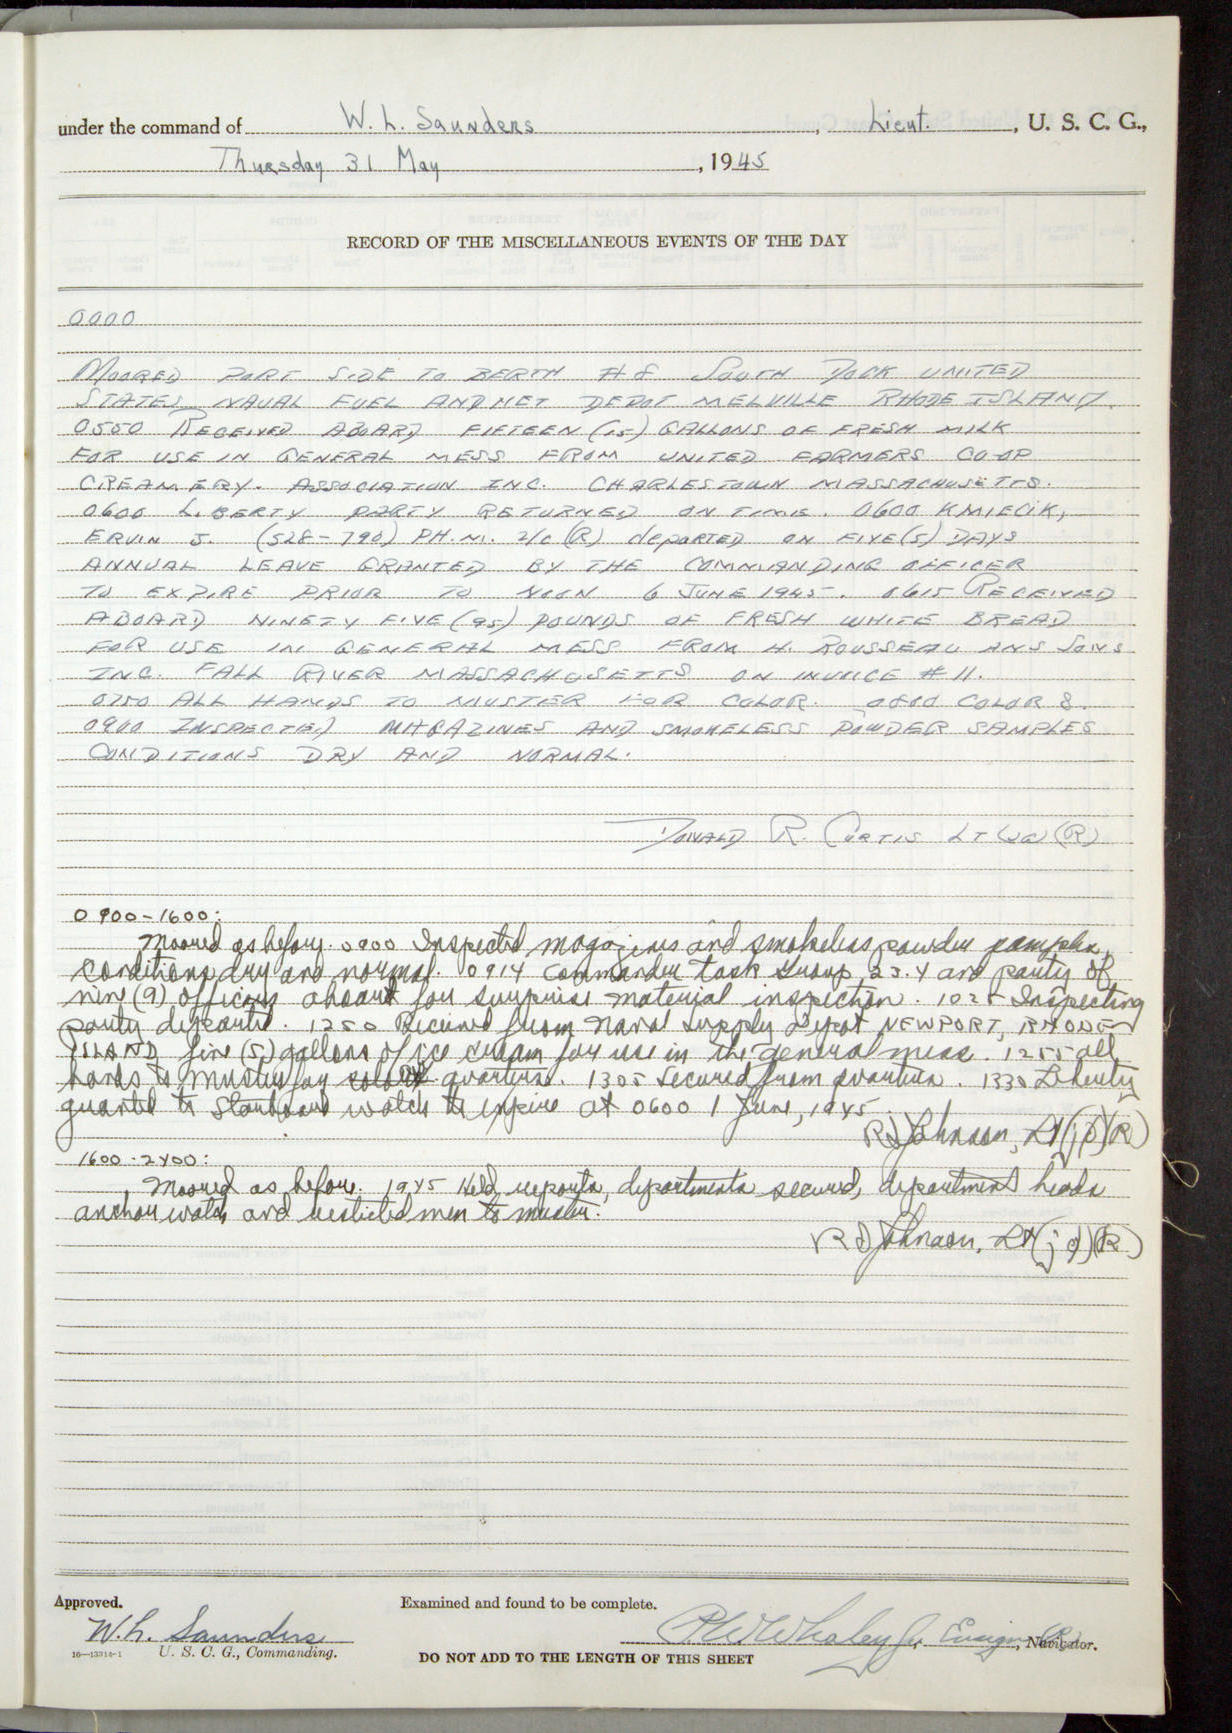 under the command of W. L. Saunders, Lieut., U. S. C. G.,
Thursday 31 May, 1945
RECORD OF THE MISCELLANEOUS EVENTS OF THE DAY
0000
MOORED PORT SIDE TO BERTH #8 SOUTH DOCK UNITED
STATES NAVAL FUEL AND NET DEPOT MELVILLE RHODE ISLAND.
0550 RECEIVED ABOARD FIFTEEN (15) GALLONS OF FRESH MILK
FOR USE IN GENERAL MESS FROM UNITED FARMERS CO-OP
CREAMERY. ASSOCIATION INC. CHARLESTOWN MASSACHUSETTS.
0600 LIBERTY PARTY RETURNED ON TIME. 0600 KMIECIK,
ERVIN J. (528-790) PH.M. 2/c (R) departed ON FIVE (5) DAYS
ANNUAL LEAVE GRANTED BY THE COMMANDING OFFICER
TO EXPIRE PRIOR TO NOON 6 JUNE 1945. 0615 RECEIVED
ABOARD NINETY FIVE (95) POUNDS OF FRESH WHITE BREAD
FOR USE IN GENERAL MESS FROM H. ROUSSEAU ANS SONS
INC. FALL RIVER MASSACHUSETTS ON INVOICE #11.
0750 ALL HANDS TO MUSTER FOR COLOR. 0800 COLOR 8.
0900 INSPECTED MAGAZINES AND SMOKELESS POWDER SAMPLES
CONDITIONS DRY AND NORMAL.
DONALD R. CURTIS LT (JG) (R)
0900-1600:
Moored as before. 0900 Inspected magazines and smokeless powder samples,
conditions dry and normal. 0914 Commander Task Group 23.4 and party of
nine (9) officers aboard for surprise material inspection. 1025 Inspecting
party departed. 1250 Received from Naval Supply Depot NEWPORT, RHODE
ISLAND five (5) gallons of ice cream for use in the general mess. 1255 all
hands to muster for quarters. 1305 Secured from quarters. 1330 Liberty
granted to Starboard watch to expire at 0600 1 June, 1945.
R J Johnson, Lt (jg) (R)
1600-2400:
Moored as before. 1945 Held reports, departments secured, department heads
anchor watch and restricted men to muster.
R J Johnson, Lt (jg) (R)
Approved. Examined and found to be complete.
W. L. Saunders
U. S. C. G., Commanding.
Whaley Jr. Ensign (R), Navigator.
16—13314-1
DO NOT ADD TO THE LENGTH OF THIS SHEET